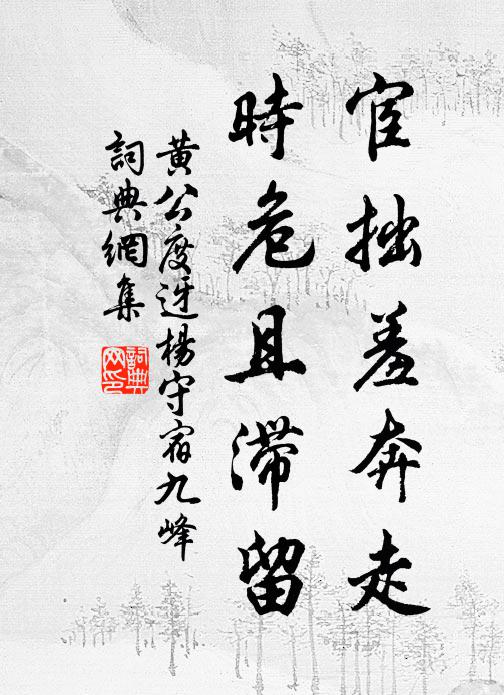 宦拙羞奔走
時危且滯留
黃公度迓楊守宿九峰
詞典網集
詞典网印